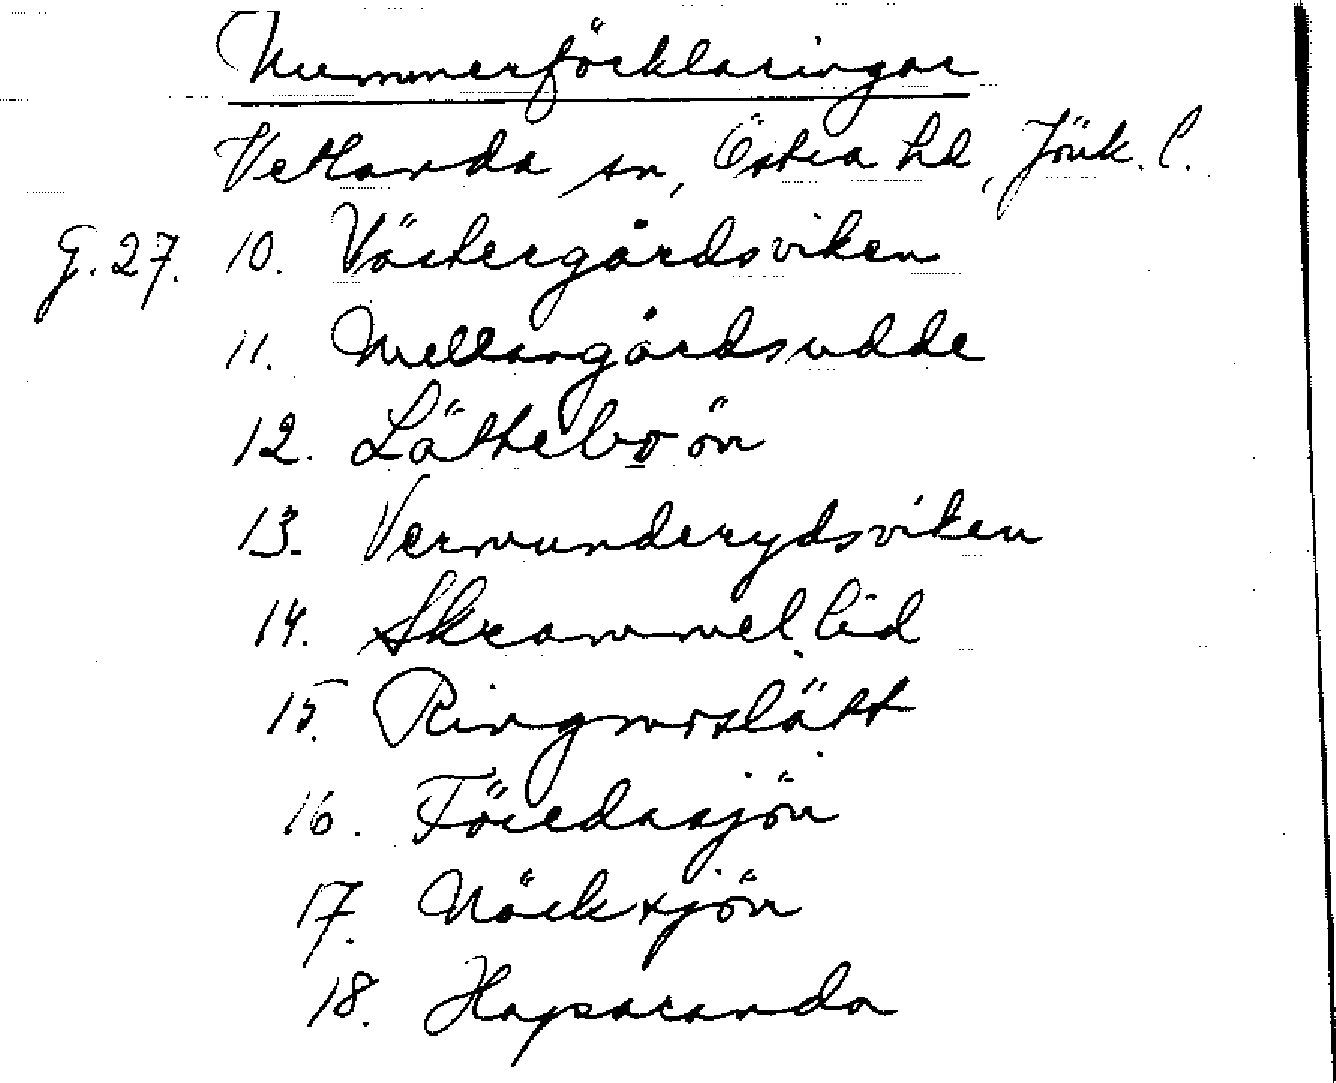 Nummerförklaringar
Vetlanda sn, Östra hd, Jönk. l.
G. 27. 10. Västergårdsviken
11. Mellangårdsudde
12. Lättebo ön
13. Vermunderydsviken
14. Skrammel lid
15. Ringmoslätt
16. Föredasjön
17. Näcksjön
18. Haparanda